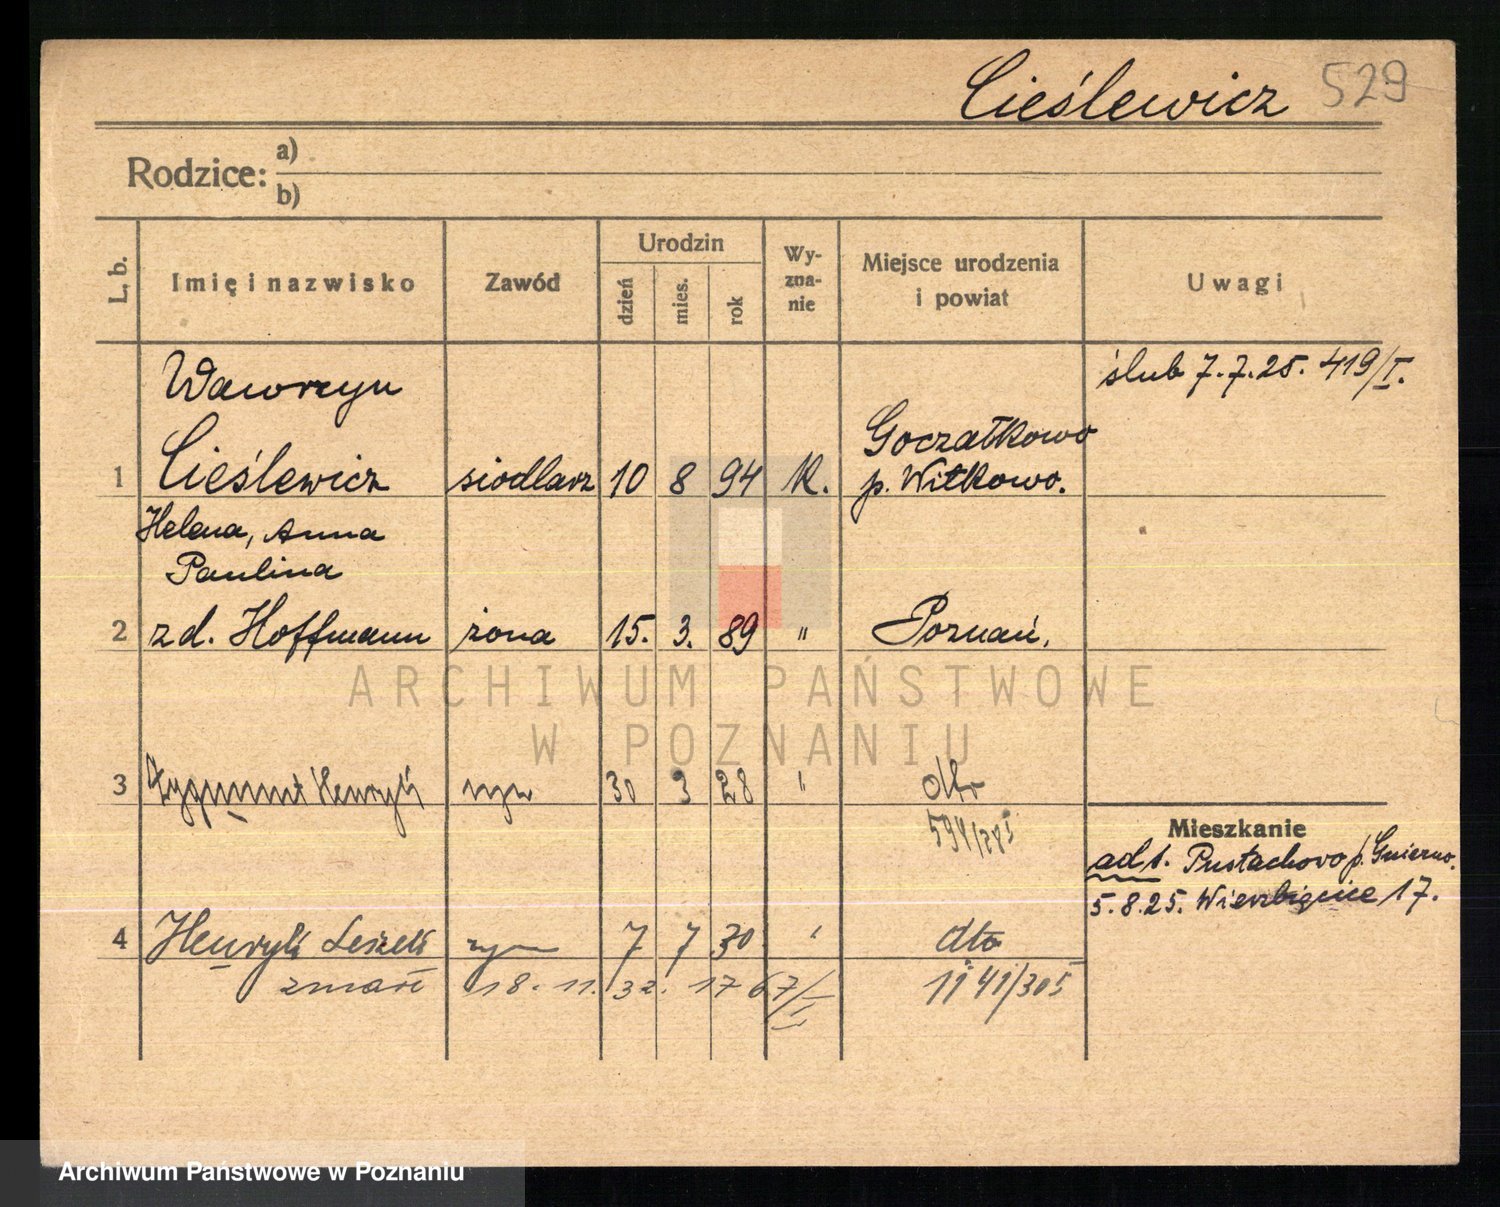 Cieślewicz 529
Rodzice: a)
b)
L. b.
Imię i nazwisko
Zawód
Urodzin
dzień
mies.
rok
Wy-
zna-
nie
Miejsce urodzenia
i powiat
Uwagi
Wawrzyn
ślub 7.7.25. 419/I.
Goczałkowo
1 Cieślewicz siodlarz 10 8 94 k. p. Witkowo.
Helena, Anna
Paulina
2 zd. Hoffmann żona 15. 3. 89 " Poznań.
ARCHIWUM PAŃSTWOWE
W POZNANIU
3 Zygmunt Henryk syn 30 3 28 "
Mieszkanie
ad 1. Pustachowo p. Gniezno.
5.8.25. Wierzbięcice 17.
4 Henryk Leszek syn 7 7 30 " dto
zmarł 18. 11. 32. 1141/305
Archiwum Państwowe w Poznaniu